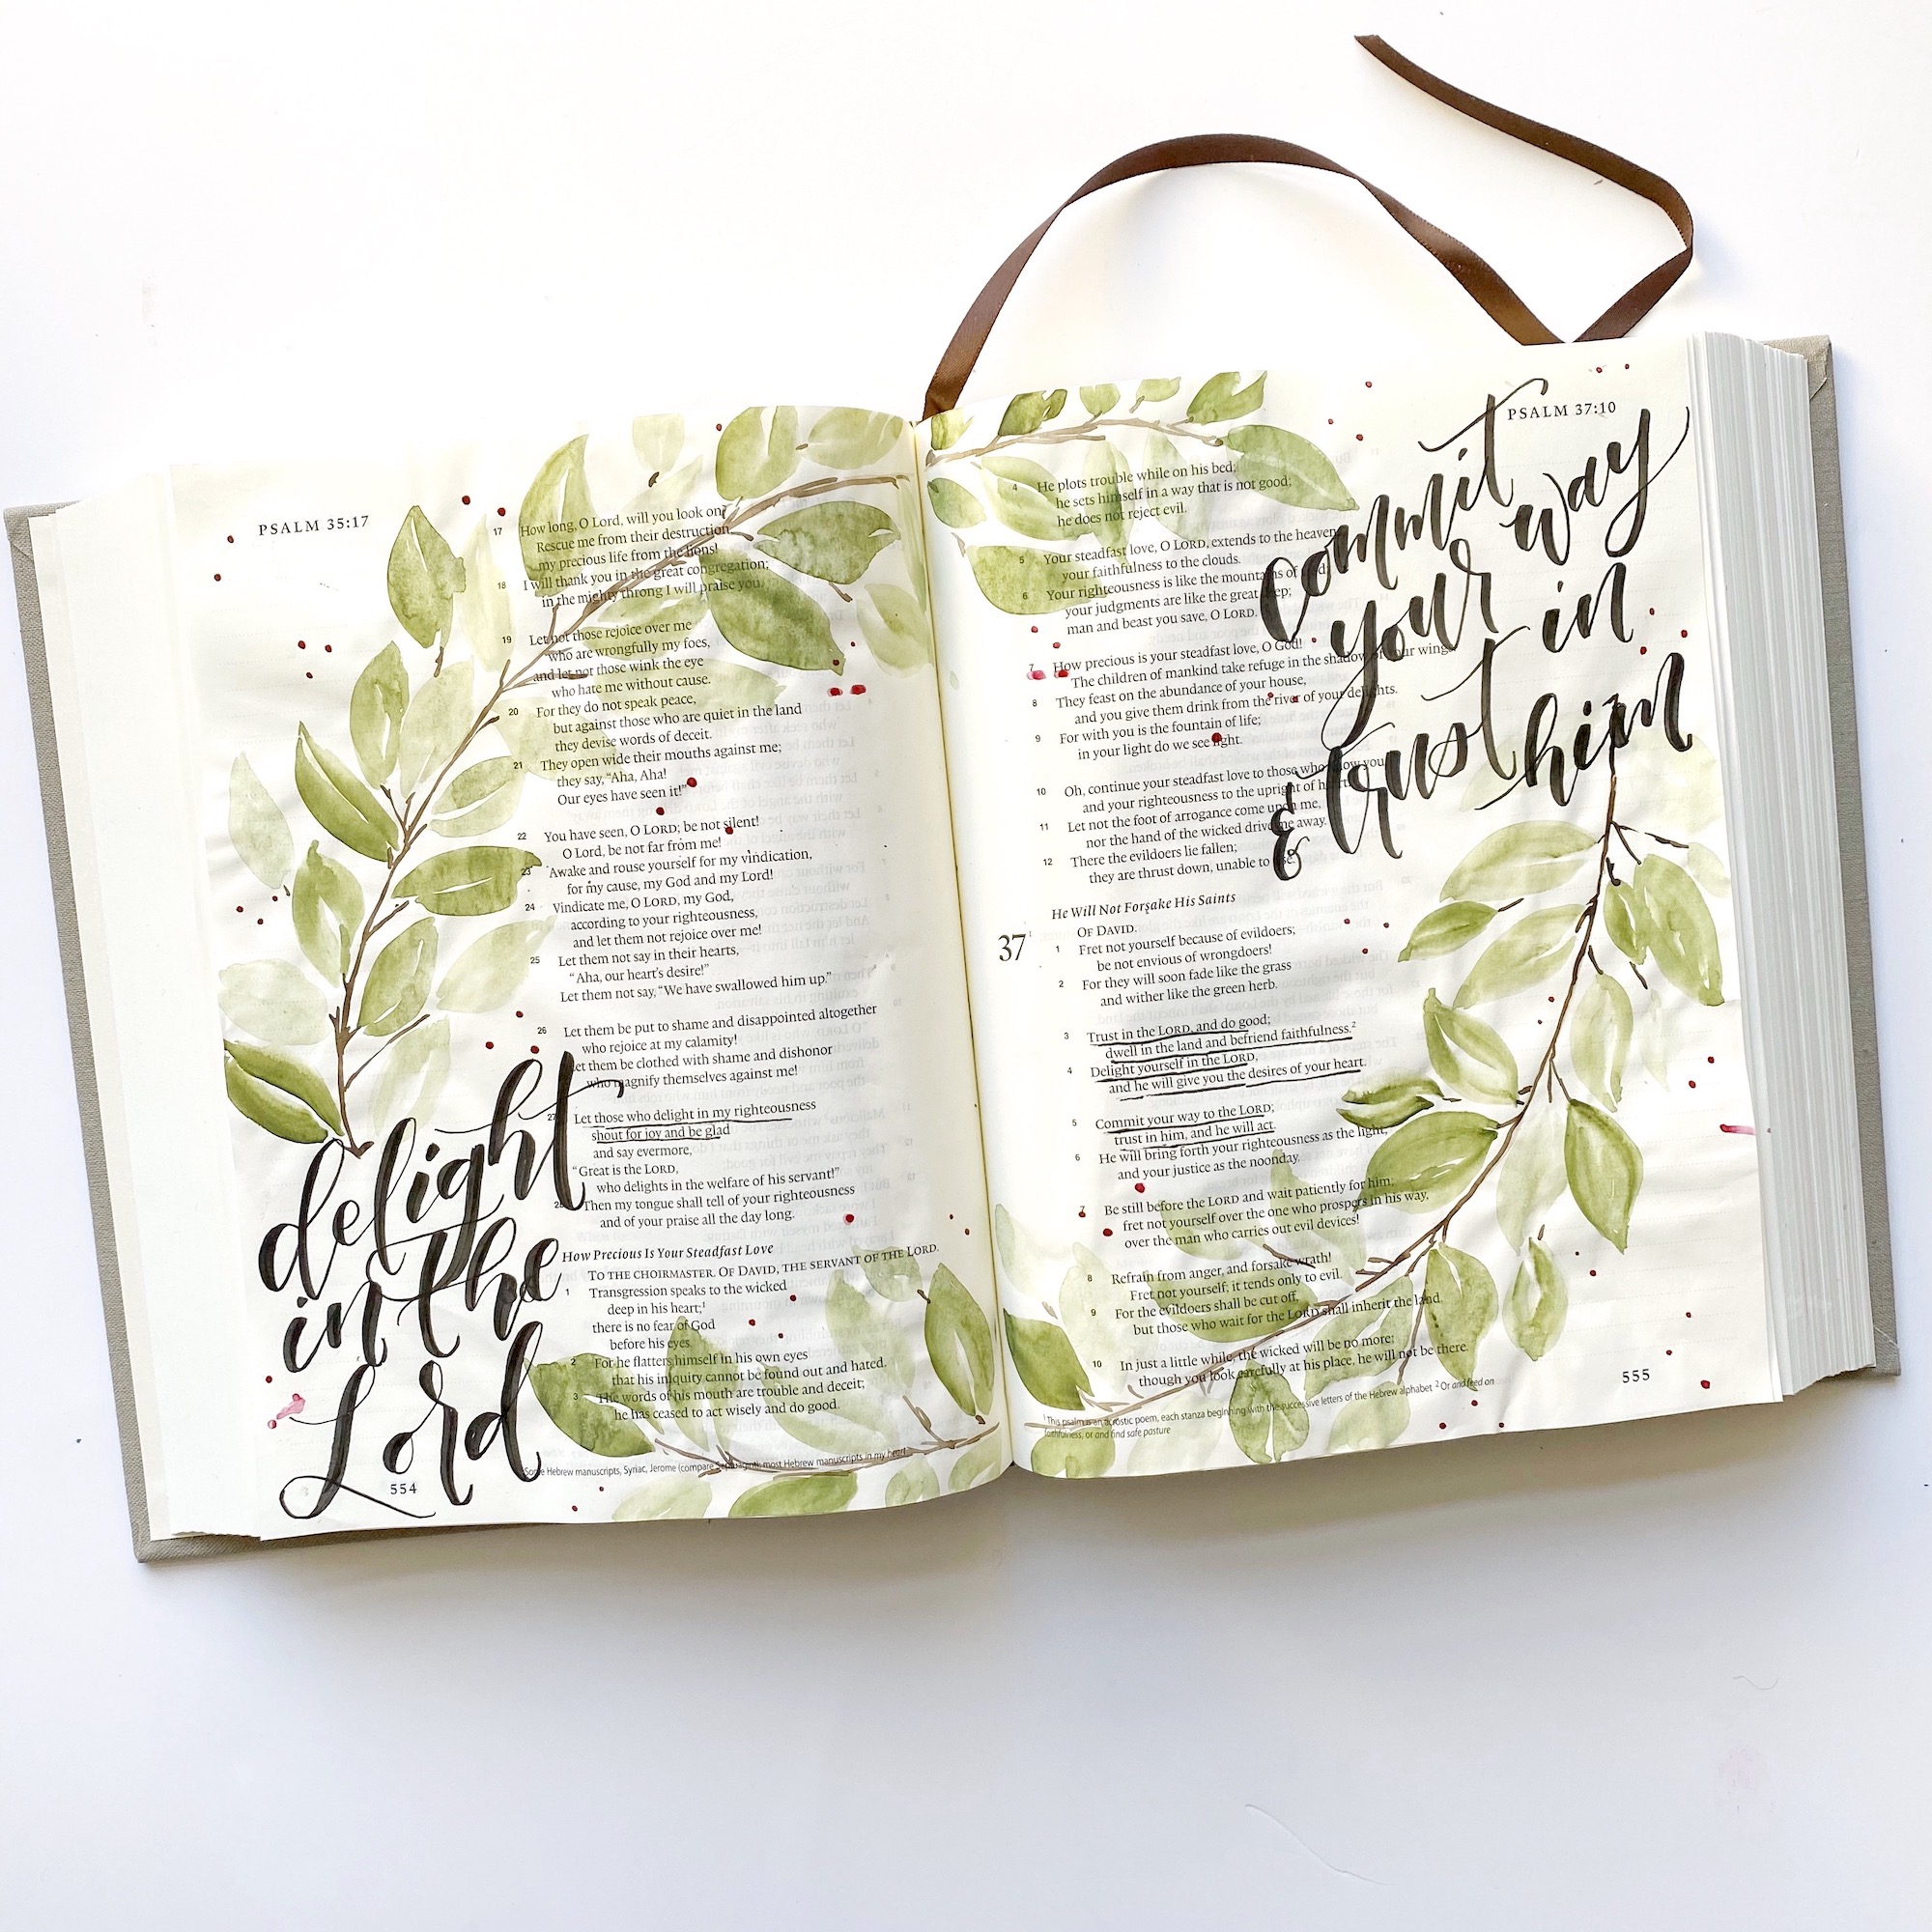 PSALM 35:17
17 How long, O Lord, will you look on?
Rescue me from their destruction,
my precious life from the lions!
18 I will thank you in the great congregation;
in the mighty throng I will praise you.
19 Let not those rejoice over me
who are wrongfully my foes,
and let not those wink the eye
who hate me without cause.
20 For they do not speak peace,
but against those who are quiet in the land
they devise words of deceit.
21 They open wide their mouths against me;
they say, “Aha, Aha!
Our eyes have seen it!”
22 You have seen, O LORD; be not silent!
O Lord, be not far from me!
23 Awake and rouse yourself for my vindication,
for my cause, my God and my Lord!
24 Vindicate me, O LORD, my God,
according to your righteousness,
and let them not rejoice over me!
25 Let them not say in their hearts,
“Aha, our heart's desire!”
Let them not say, “We have swallowed him up.”
26 Let them be put to shame and disappointed altogether
who rejoice at my calamity!
Let them be clothed with shame and dishonor
who magnify themselves against me!
27 Let those who delight in my righteousness
shout for joy and be glad
and say evermore,
“Great is the LORD,
who delights in the welfare of his servant!”
28 Then my tongue shall tell of your righteousness
and of your praise all the day long.
How Precious Is Your Steadfast Love
TO THE CHOIRMASTER. OF DAVID, THE SERVANT OF THE LORD.
1 Transgression speaks to the wicked
deep in his heart;1
there is no fear of God
before his eyes.
2 For he flatters himself in his own eyes
that his iniquity cannot be found out and hated.
3 The words of his mouth are trouble and deceit;
he has ceased to act wisely and do good.
delight
in the
Lord
Some Hebrew manuscripts, Syriac, Jerome (compare Septuagint); most Hebrew manuscripts in my heart
554
PSALM 37:10
commit
your way
& trust in
him
4 He plots trouble while on his bed;
he sets himself in a way that is not good;
he does not reject evil.
5 Your steadfast love, O LORD, extends to the heavens,
your faithfulness to the clouds.
6 Your righteousness is like the mountains of God;
your judgments are like the great deep;
man and beast you save, O LORD.
7 How precious is your steadfast love, O God!
The children of mankind take refuge in the shadow of your wings.
8 They feast on the abundance of your house,
and you give them drink from the river of your delights.
9 For with you is the fountain of life;
in your light do we see light.
10 Oh, continue your steadfast love to those who know you,
and your righteousness to the upright of heart!
11 Let not the foot of arrogance come upon me,
nor the hand of the wicked drive me away.
12 There the evildoers lie fallen;
they are thrust down, unable to rise.
He Will Not Forsake His Saints
37 1 OF DAVID.
1 Fret not yourself because of evildoers;
be not envious of wrongdoers!
2 For they will soon fade like the grass
and wither like the green herb.
3 Trust in the LORD, and do good;
dwell in the land and befriend faithfulness.2
4 Delight yourself in the LORD,
and he will give you the desires of your heart.
5 Commit your way to the LORD;
trust in him, and he will act.
6 He will bring forth your righteousness as the light,
and your justice as the noonday.
7 Be still before the LORD and wait patiently for him;
fret not yourself over the one who prospers in his way,
over the man who carries out evil devices!
8 Refrain from anger, and forsake wrath!
Fret not yourself; it tends only to evil.
9 For the evildoers shall be cut off,
but those who wait for the LORD shall inherit the land.
10 In just a little while, the wicked will be no more;
though you look carefully at his place, he will not be there.
1 This psalm is an acrostic poem, each stanza beginning with the successive letters of the Hebrew alphabet 2 Or and feed on
faithfulness, or and find safe pasture
555